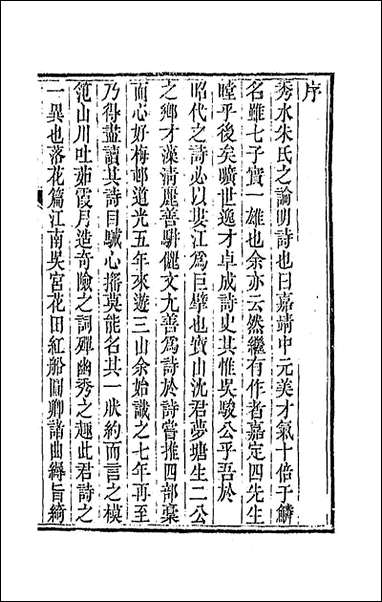 序
秀水朱氏之論明詩也曰嘉靖中元美才氣十倍于鱗
名雖七子實一雄也余亦云然繼有作者嘉定四先生
瞠乎後矣曠世逸才卓成詩史其惟吳駿公乎吾於
昭代之詩必以婁江爲巨擘也寶山沈君夢塘生二公
之鄉才藻淸麗善駢儷文尤善爲詩於詩嘗推四部稾
而心好梅邨道光五年來遊三山余始識之七年再至
乃得盡讀其詩目駴心搖莫能名其一狀約而言之模
范山川吐茹霞月造奇險之詞殫幽秀之趣此君詩之
一異也落花篇江南吳宮花田紅船圓卿諸曲縟旨綺